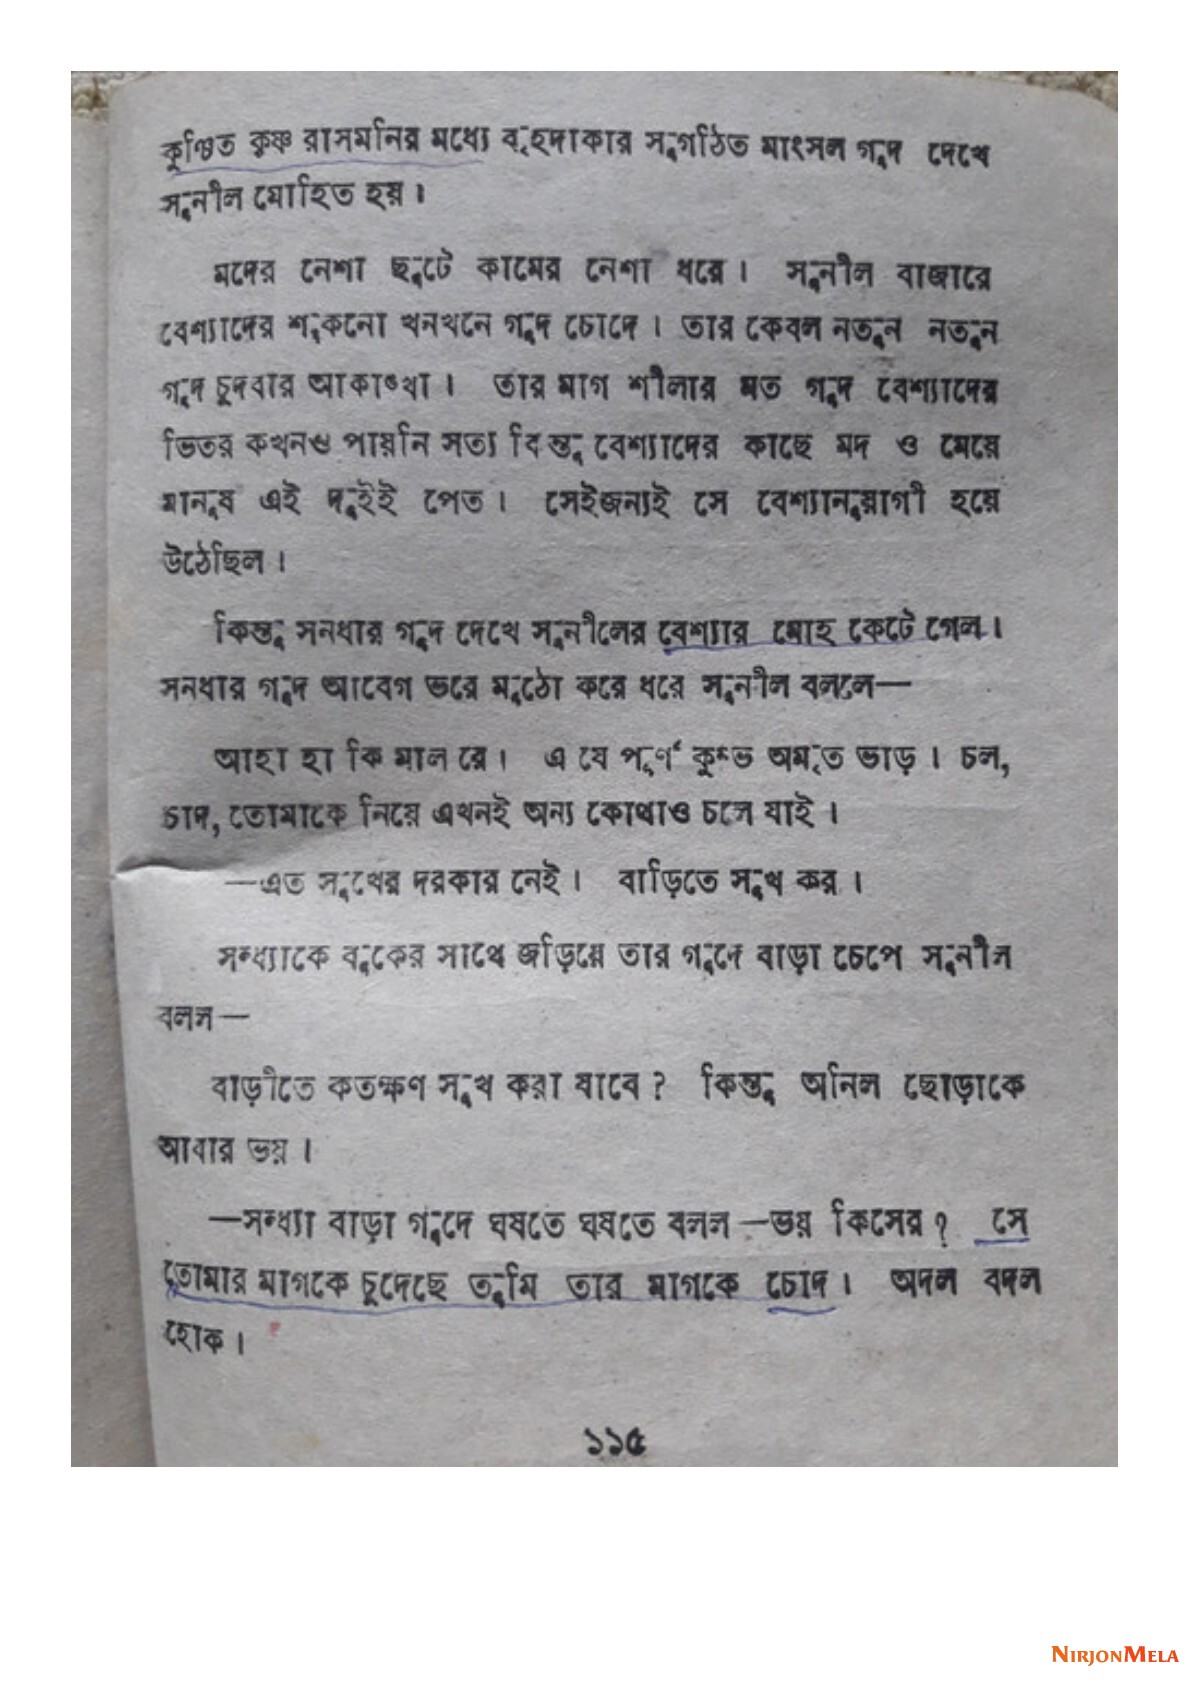 কুঞ্চিত কৃষ্ণ রাসমনির মধ্যে বৃহদাকার সুগঠিত মাংসল গুদ দেখে
সুনীল মোহিত হয়।
মদের নেশা ছুটে কামের নেশা ধরে। সুনীল বাজারে
বেশ্যাদের শুকনো খনখনে গুদ চোদে। তার কেবল নতুন নতুন
গুদ চুদবার আকাঙ্খা। তার মাগ শীলার মত গুদ বেশ্যাদের
ভিতর কখনও পায়নি সত্য কিন্তু বেশ্যাদের কাছে মদ ও মেয়ে
মানুষ এই দুইই পেত। সেইজন্যই সে বেশ্যানুরাগী হয়ে
উঠেছিল।
কিন্তু সনধার গুদ দেখে সুনীলের বেশ্যার মোহ কেটে গেল।
সনধার গুদ আবেগ ভরে মুঠো করে ধরে সুনীল বললে—
আহা হা কি মাল রে। এ যে পূর্ণ কুম্ভ অমৃত ভাড়। চল,
চাদ, তোমাকে নিয়ে এখনই অন্য কোথাও চলে যাই।
—এত সুখের দরকার নেই। বাড়িতে সুখ কর।
সন্ধ্যাকে বুকের সাথে জড়িয়ে তার গুদে বাড়া চেপে সুনীল
বলল—
বাড়ীতে কতক্ষণ সুখ করা যাবে? কিন্তু অনিল ছোড়াকে
আবার ভয়।
—সন্ধ্যা বাড়া গুদে ঘষতে ঘষতে বলল—ভয় কিসের? সে
তোমার মাগকে চুদেছে তুমি তার মাগকে চোদ। অদল বদল
হোক।
১১৫
NIRJONMELA